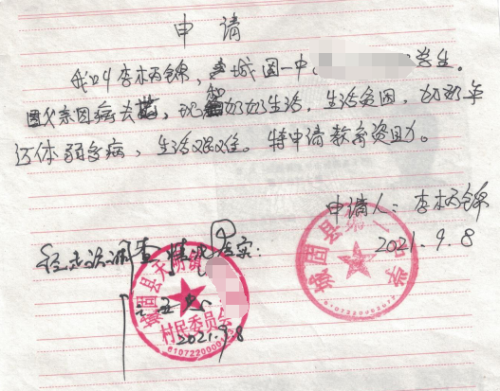 申请
我叫李杨锦，城固一中学生。
因父亲因病去世，现和奶奶生活，生活贫困，奶奶年
迈体弱多病，生活艰难。特申请教育资助。
申请人：李杨锦
2021.9.8
经走访调查情况属实：
2021.9.8
城固县
村民委员会
城固县第一中学